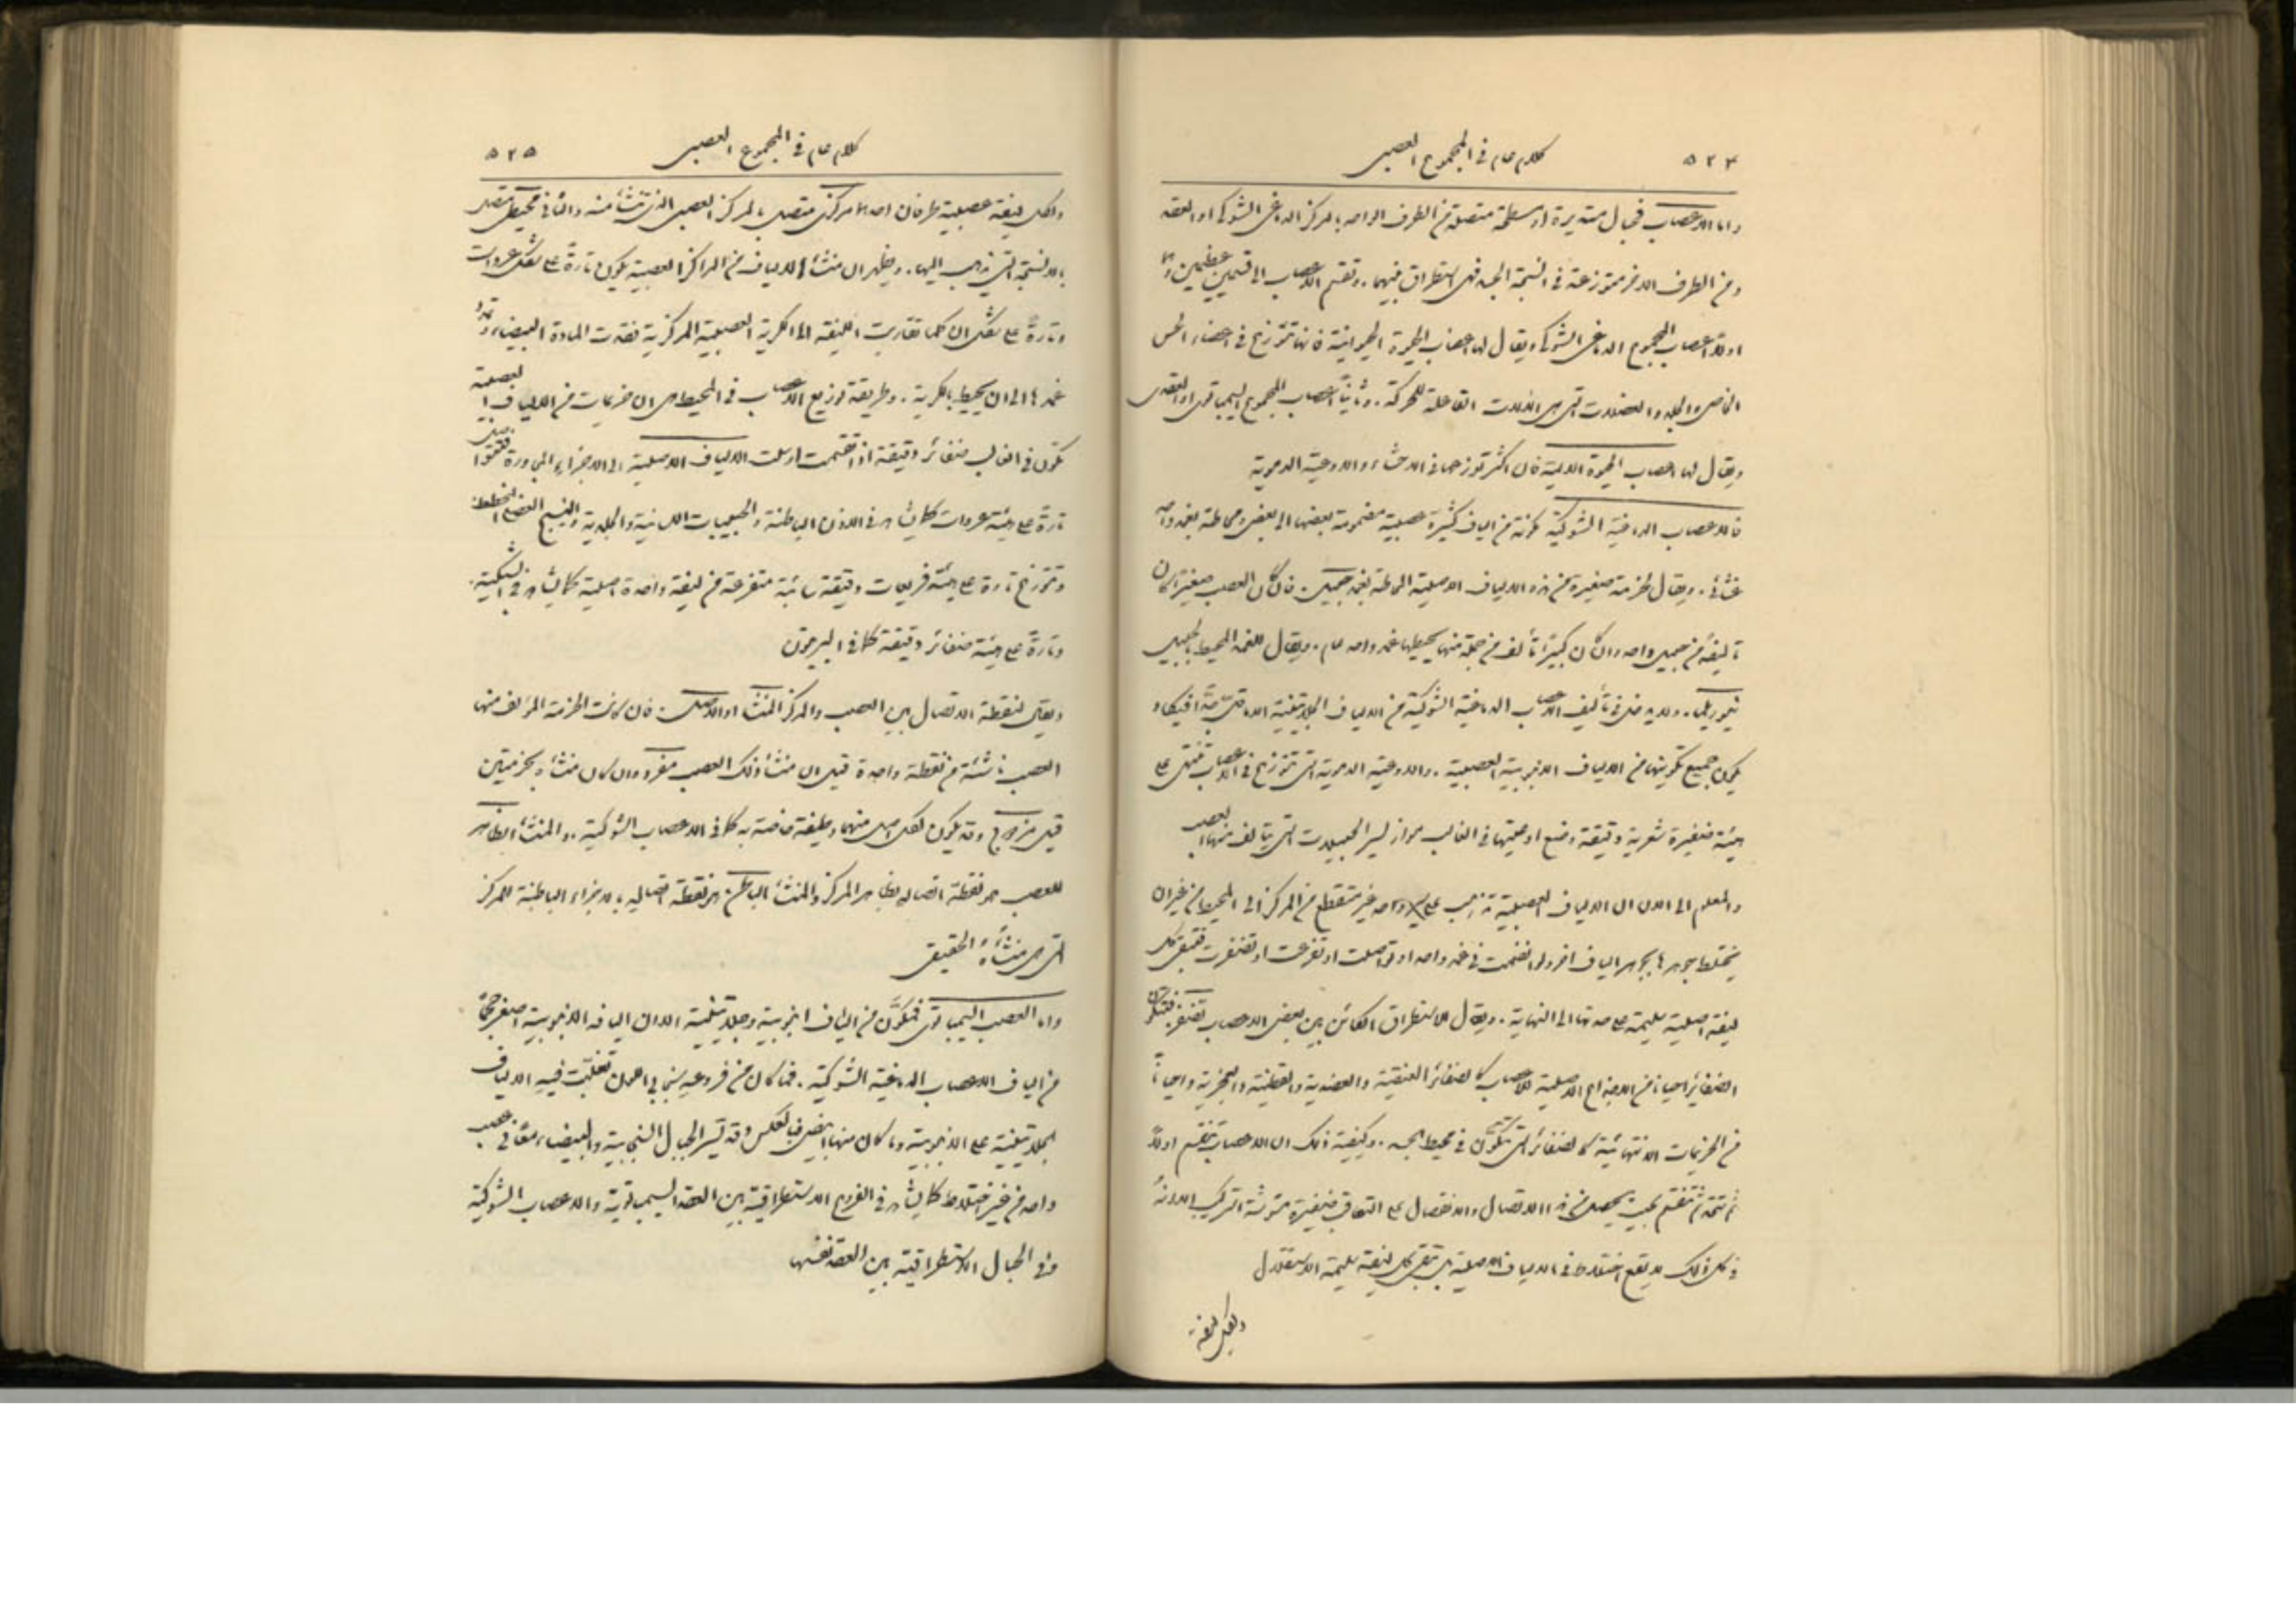 ٥٢٤ كلام عام في المجموع العصبي
واما الاعصاب فحبال مستديرة او مسطحة متصلة من الطرف الواحد بالمركز الدماغي الشوكي او العقد
ومن الطرف الاخر متوزعة في انسجة الجسد فهي استطراق بينهما . وتقسم الاعصاب الى قسمين عظيمين وهما
اولاً اعصاب المجموع الدماغي الشوكي ويقال لها اعصاب الحيوة الحيوانية فانها تتوزع في اعضاء الحس
الخاص والجلد والعضلات التي هي الالات الفاعلة للحركة . وثانياً اعصاب المجموع السيمباتوي او العقدي
ويقال لها اعصاب الحيوة الالية فان اكثر توزعها في الاحشاء والاوعية الدموية
فالاعصاب الدماغية الشوكية مكونة من الياف كثيرة عصبية مضمومة بعضها الى بعض ومحاطة بغمد واحد
غشائي . ويقال لحزمة صغيرة من هذه الالياف الاصلية المحاطة بغمد حبيل . فان كان العصب صغيراً كان
تاليفه من حبيل واحد وان كان كبيراً تألف من جملة منها يحيطها غمد واحد عام . ويقال للغمد المحيط بالحبيل
نيوريلما . ولا بد في تأليف الاعصاب الدماغية الشوكية من الالياف الجلاتينية الا في ما ندر فيكاد
يكون جميع تكوينها من الالياف الانبوبية العصبية . والاوعية الدموية التي تتوزع في الاعصاب تنتهي على
هيئة ضفيرة شعرية دقيقة وضع اوعيتها في الغالب مواز لسير الحبيلات التي يتالف منها العصب
والمعلوم الى الان ان الالياف العصبية تذهب على سير واحد غير متقطع من المركز الى المحيط من غير ان
يختلط جوهرها بجوهر الياف اخر ولو انضمت في غمد واحد او تواصلت او تفرعت او تضفرت فتبقى كل
ليفة اصلية سليمة على حدتها الى النهاية . ويقال للاستطراق الكائن بين بعض الاعصاب تضفر فتتكون
الضفائر احياناً من الاجذاع الاصلية للاعصاب كالضفائر العنقية والعضدية والقطنية والعجزية واحياناً
من الحزيمات الانتهائية كالضفائر التي تتكون في محيط الجسد . وكيفية ذلك ان الاعصاب تنقسم اولاً
ثم تتحد ثم تنقسم بحيث يحصل من هذا الاتصال والانفصال على التعاقب ضفيرة مشوشة التركيب الا انهُ
في كل ذلك لا يقع اختلاط في الالياف الاصلية بل تبقى كل ليفة سليمة الاستقلال
ولكل ليفة
كلام عام في المجموع العصبي ٥٢٥
ولكل ليفة عصبية طرفان احدهما مركزي متصل بالمركز العصبي الذي تنشأ منه والثاني محيطي متصل
بالانسجة التي يذهب اليها . ويظهر ان منشأ الالياف من المراكز العصبية يكون تارةً على شكل عروات
وتارةً على شكل ان كلما تقاربت الليفة الى الكرية العصبية المركزية فقدت المادة البيضاء وتمدد
غمدها الى ان يحيط بالكرية . وطريقة توزيع الاعصاب في المحيط هي ان حزيمات من الالياف العصبية
تكون في الغالب ضفائر دقيقة اذا انقسمت ارسلت الالياف الاصلية الى الاجزاء المجاورة فتتوزع
تارةً على هيئة عروات كما يشاهد في الاذن الباطنة والحليمات اللسانية والجلدية والنسيج العضلي المخطط
وتتوزع تارة على هيئة فريعات دقيقة سائبة متفرعة من ليفة واحدة اصلية كما يشاهد في الشبكية .
وتارةً على هيئة ضفائر دقيقة كما في البريتون
ويقال لنقطة الاتصال بين العصب والمركز المنشأ او الاصل . فان كانت الحزمة المؤلف منها
العصب ناشئة من نقطة واحدة قيل ان منشأ ذلك العصب مفرد وان كان منشأه بحزمتين
قيل مزدوج وقد يكون لكل اصل منهما وظيفة خاصة به كما في الاعصاب الشوكية . والمنشأ الظاهر
للعصب هو نقطة اتصاله بظاهر المركز والمنشأ الباطن هو نقطة اتصاله بالاجزاء الباطنة للمركز
التي هي منشأهُ الحقيقي
واما العصب السيمباتوي فمكوَّن من الياف انبوبية وجلاتينية الا ان اليافه الانبوبية اصغر حجماً
من الياف الاعصاب الدماغية الشوكية . فما كان من فروعهِ سنجابي اللون تغلبت فيهِ الالياف
الجلاتينية على الانبوبية وما كان منها ابيض فبالعكس وقد تسير الحبال السنجابية والبيضاء معاً في عصب
واحد من غير اختلاط كما يشاهد في الفروع الاستطراقية بين العقد السيمباتوية والاعصاب الشوكية
وفي الحبال الاستطراقية بين العقد نفسها